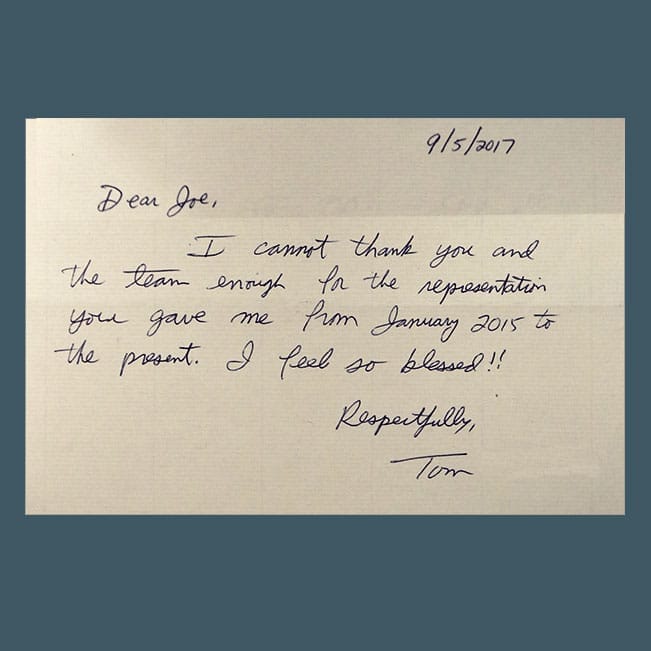 9/5/2017
Dear Joe,
I cannot thank you and
the team enough for the representation
you gave me from January 2015 to
the present. I feel so blessed!!
Respectfully,
Tom